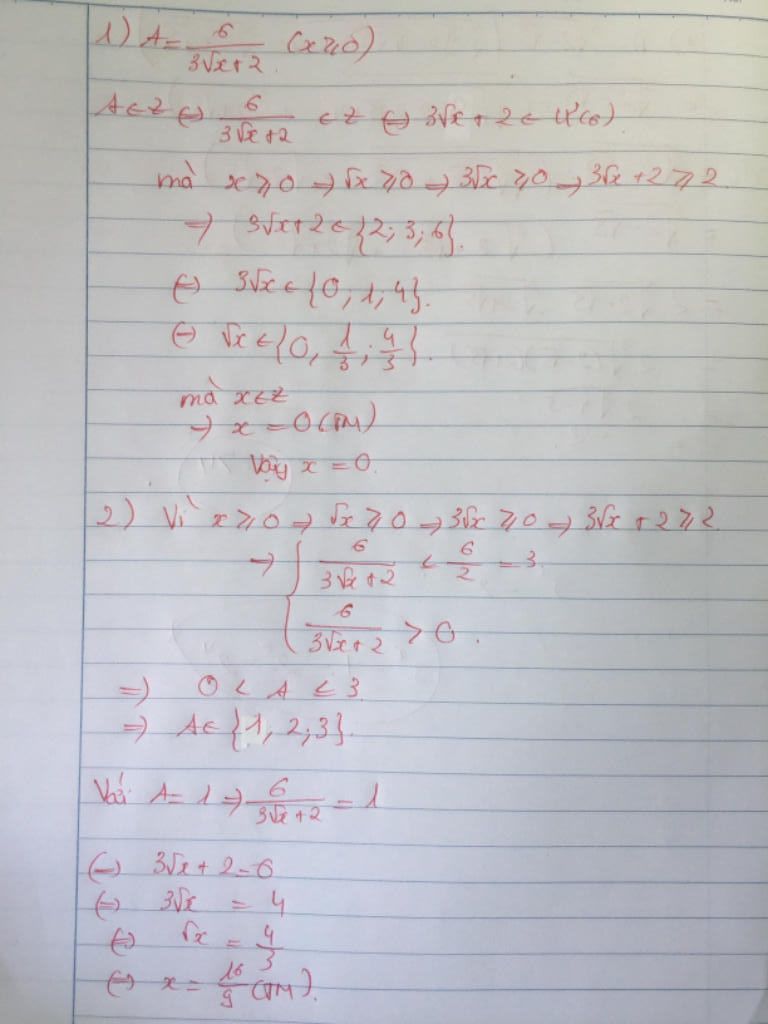 1) A = 6/(3√x+2) (x ≥ 0)
A ∈ Z ⇔ 6/(3√x+2) ∈ Z ⇔ 3√x + 2 ∈ Ư(6)
mà x ≥ 0 → √x ≥ 0 → 3√x ≥ 0 → 3√x + 2 ≥ 2
⇒ 3√x+2 ∈ {2; 3; 6}.
⇔ 3√x ∈ {0, 1, 4}.
⇔ √x ∈ {0, 1/3; 4/3}.
mà x ∈ Z
→ x = 0 (TM)
Vậy x = 0.
2) Vì x ≥ 0 → √x ≥ 0 → 3√x ≥ 0 → 3√x + 2 ≥ 2.
⇒ { 6/(3√x+2) ≤ 6/2 = 3.
6/(3√x+2) > 0.
⇒ 0 < A ≤ 3
⇒ A ∈ {1, 2; 3}.
Với A = 1 ⇒ 6/(3√x+2) = 1
⇔ 3√x + 2 = 6
⇔ 3√x = 4
⇔ √x = 4/3
⇔ x = 16/9 (TM).